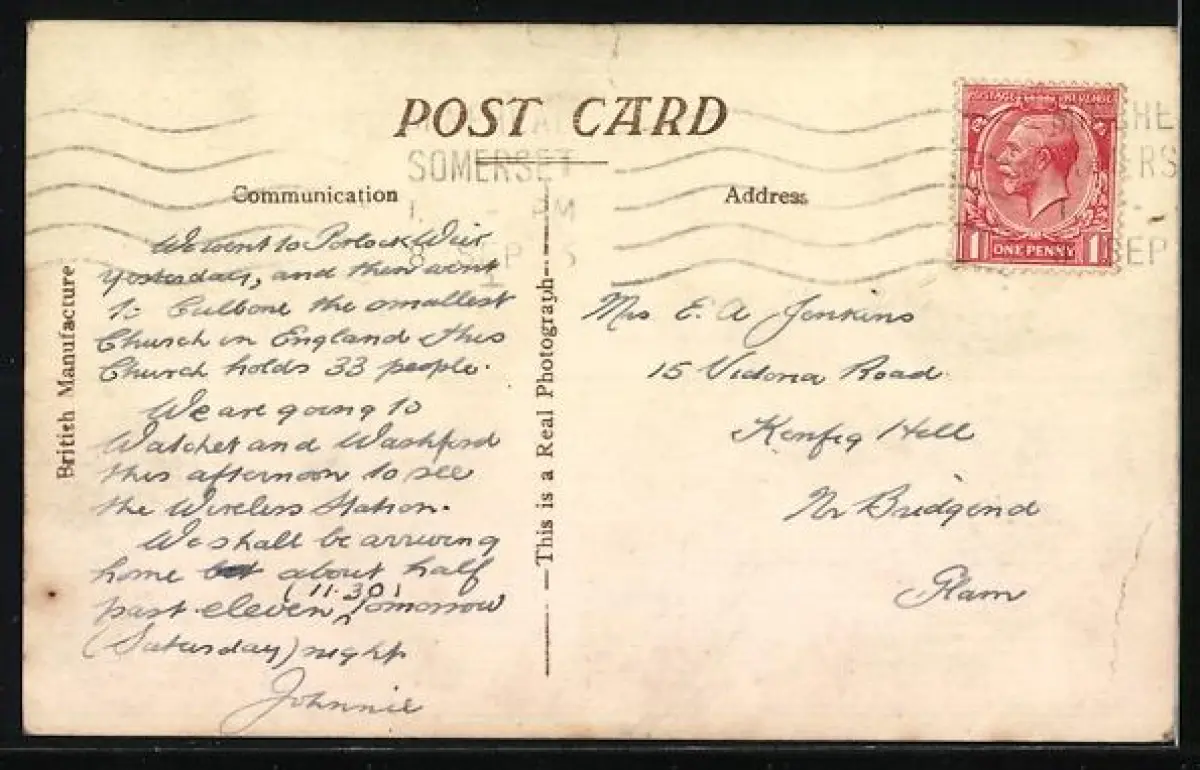 POST CARD
SOMERSET
PM
8 SEP
SEP
POSTAGE REVENUE
1 ONE PENNY 1
Communication
Address
British Manufacture
This is a Real Photograph
We went to Porlock Weir
yesterday, and then went
to Culbone the smallest
Church in England this
Church holds 33 people.
We are going to
Watchet and Washford
this afternoon to see
the Wireless Station.
We shall be arriving
home about half
(11.30)
past eleven, tomorrow
(Saturday) night
Johnnie
Mrs E. A Jenkins
15 Victoria Road
Kenfig Hill
Nr Bridgend
Glam